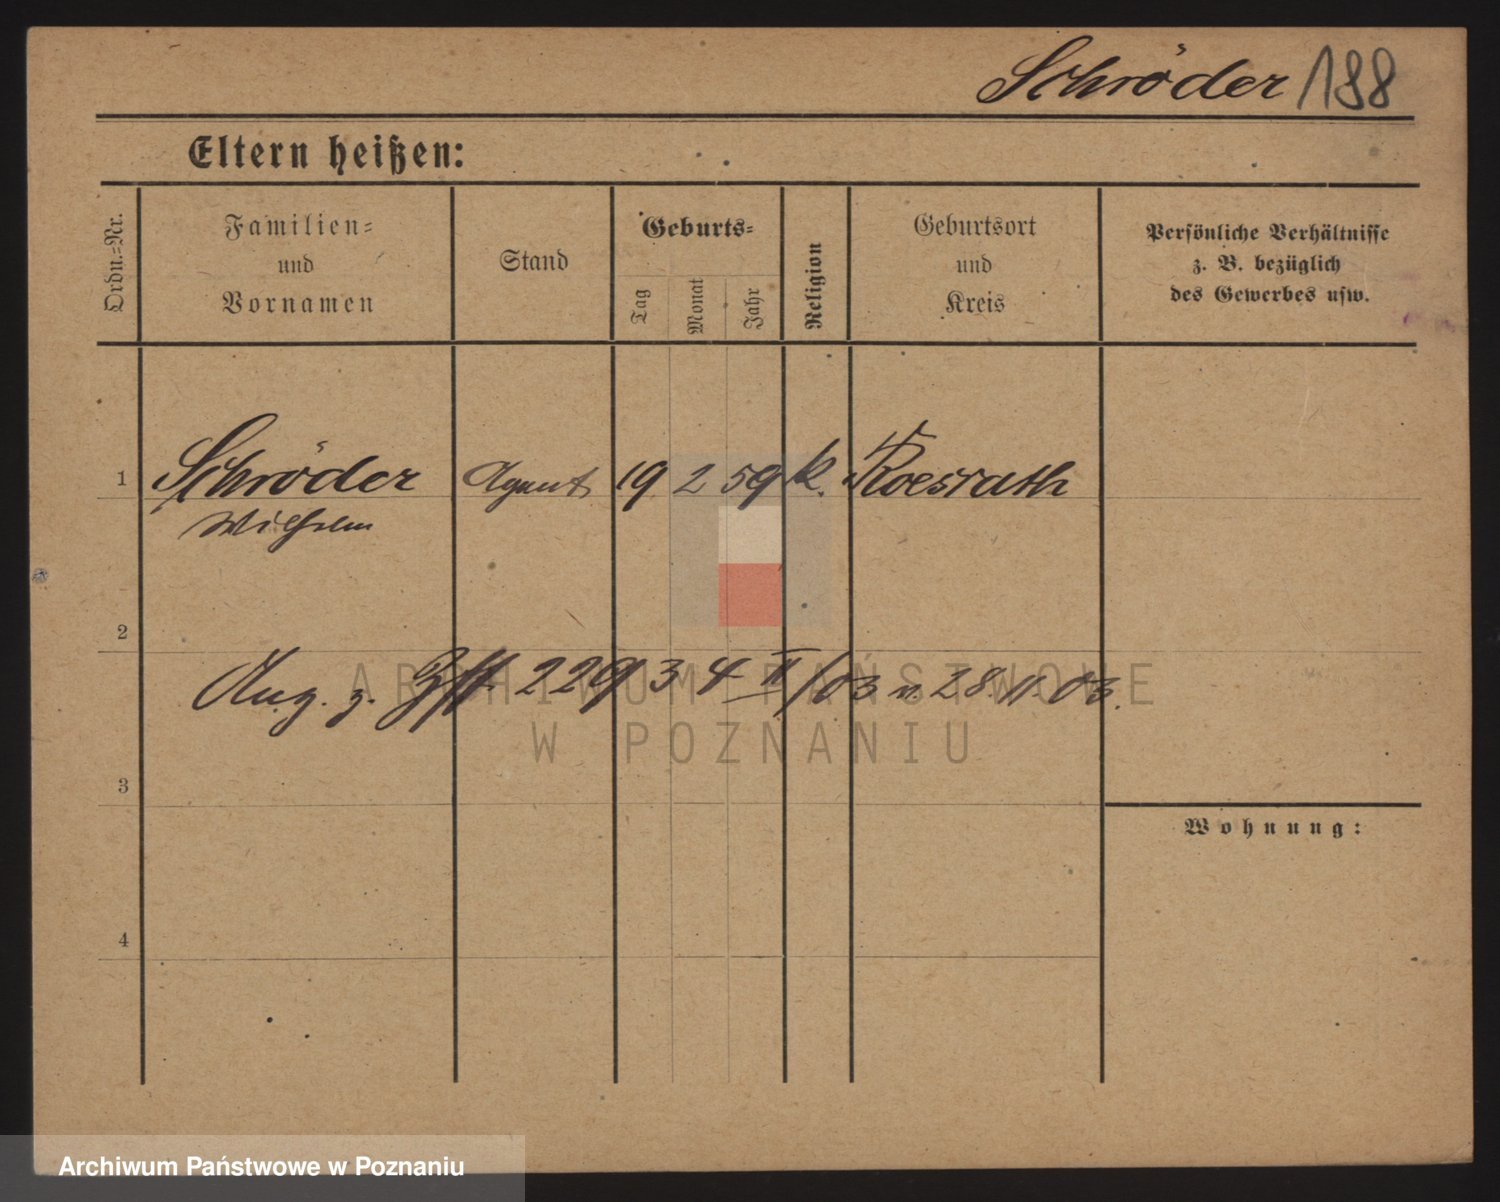 Schröder 188
Eltern heißen:
Ordn.-Nr.
Familien-
und
Vornamen
Stand
Geburts-
Tag
Monat
Jahr
Religion
Geburtsort
und
Kreis
Persönliche Verhältnisse
z. B. bezüglich
des Gewerbes usw.
1 Schröder Agent 19 2 59 k. Roesrath
Wilhelm
2
Ang. z. 229/3 4 II/03 v. 28.11.03.
ARCHIWUM PAŃSTWOWE
W POZNANIU
3
Wohnung:
4
Archiwum Państwowe w Poznaniu